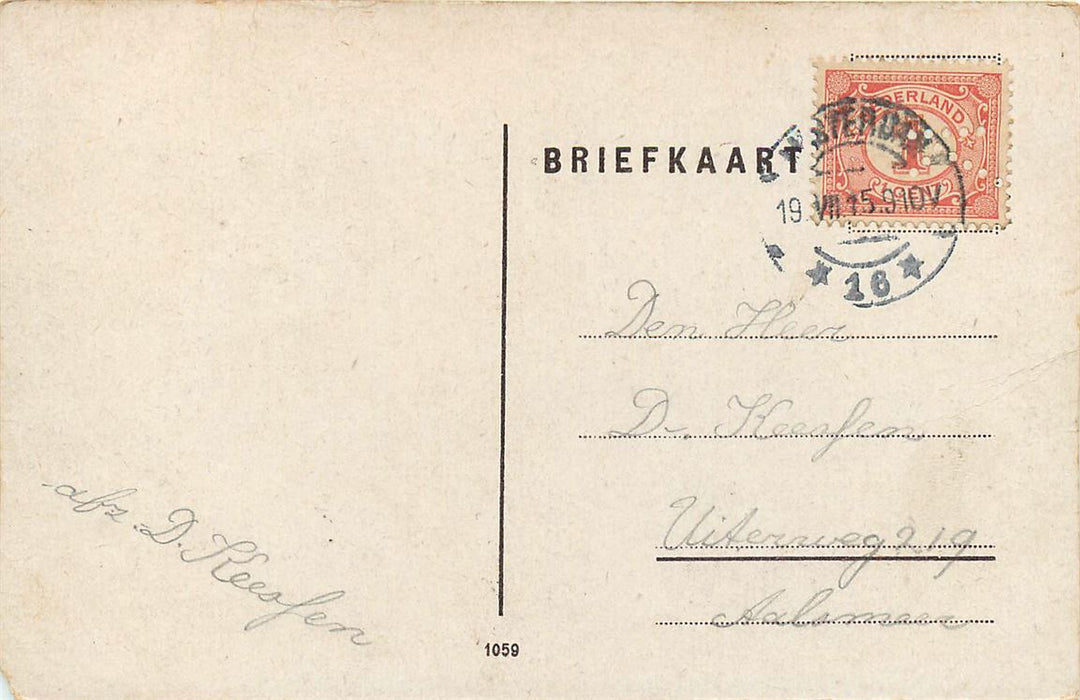 BRIEFKAART
NEDERLAND
1
AMSTERDAM
19.VII.15.9-10V
* 16 *
Den Heer
D. Keessen
Uiterweg 219
Aalsmeer
afz. D. Keessen
1059